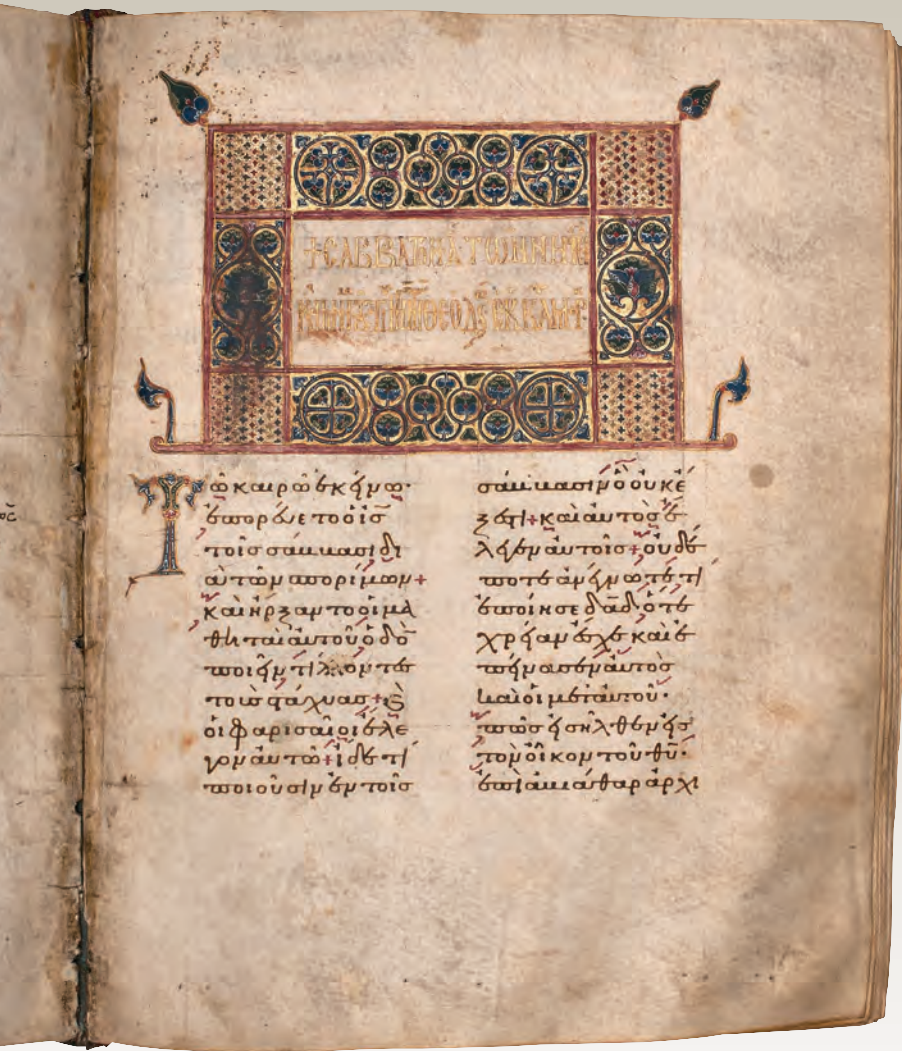 + CΑΒΒΑΤ Α ΤΩΝ ΝΗ
ΘΕΟΔ ΕΚ
Τῶ καιρῶ ἐκείνω·
ἐπορεύετο ὁ ἰ̅ς̅
τοῖς σάββασι δι
ὰ τῶν σπορίμων +
καὶ ἤρξαντο οἱ μα
θηταὶ αὐτοῦ ὁδὸ
ποιεῖν τίλλοντες
τοὺς στάχυας + ϗ
οἱ φαρισαῖοι ἔλε
γον αὐτῶ + ἴδε τί
ποιοῦσιν ἐν τοῖς
σάββασιν ὃ οὐκ ἔ
ξεστι + καὶ αὐτὸς ἔ
λεγεν αὐτοῖς + οὐδέ
ποτε ἀνέγνωτε τί
ἐποίησε δ̅α̅δ̅ ὅτε
χρείαν ἔσχε καὶ ἐ
πείνασεν αὐτὸς
καὶ οἱ μετ αὐτοῦ·
πῶς εἰσῆλθεν εἰς
τὸν οἶκον τοῦ θ̅υ̅·
ἐπὶ ἀβιάθαρ ἀρχι